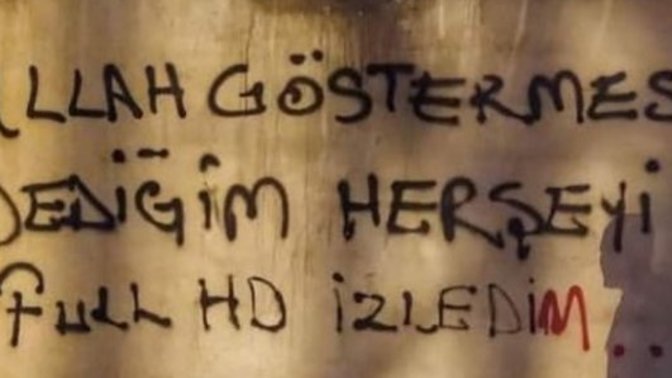 ALLAH GÖSTERMES
DEDİĞİM HERŞEYİ
fuLL HD İZLEDİM..